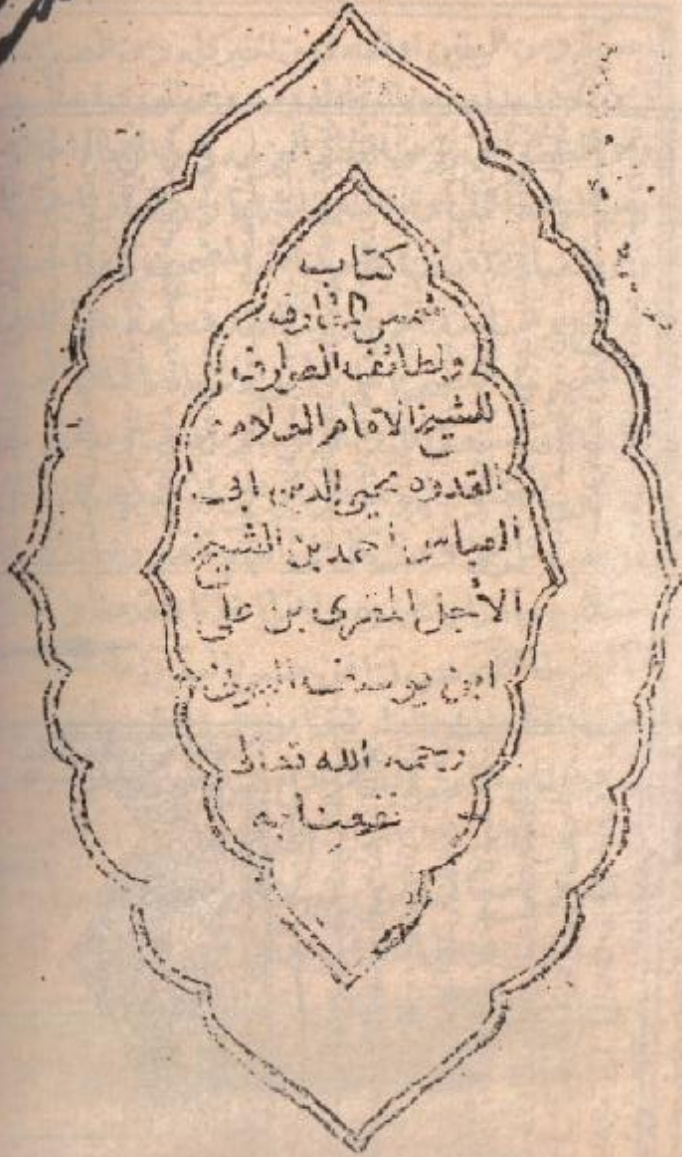 كتاب
شمس المعارف
ولطائف العوارف
للشيخ الامام العلامه
القدوه محيى الدين ابى
العباس احمد بن الشيخ
الأجل المقرى بن على
ابن يوسف البونى
رحمه الله تعالى
نفعنا به